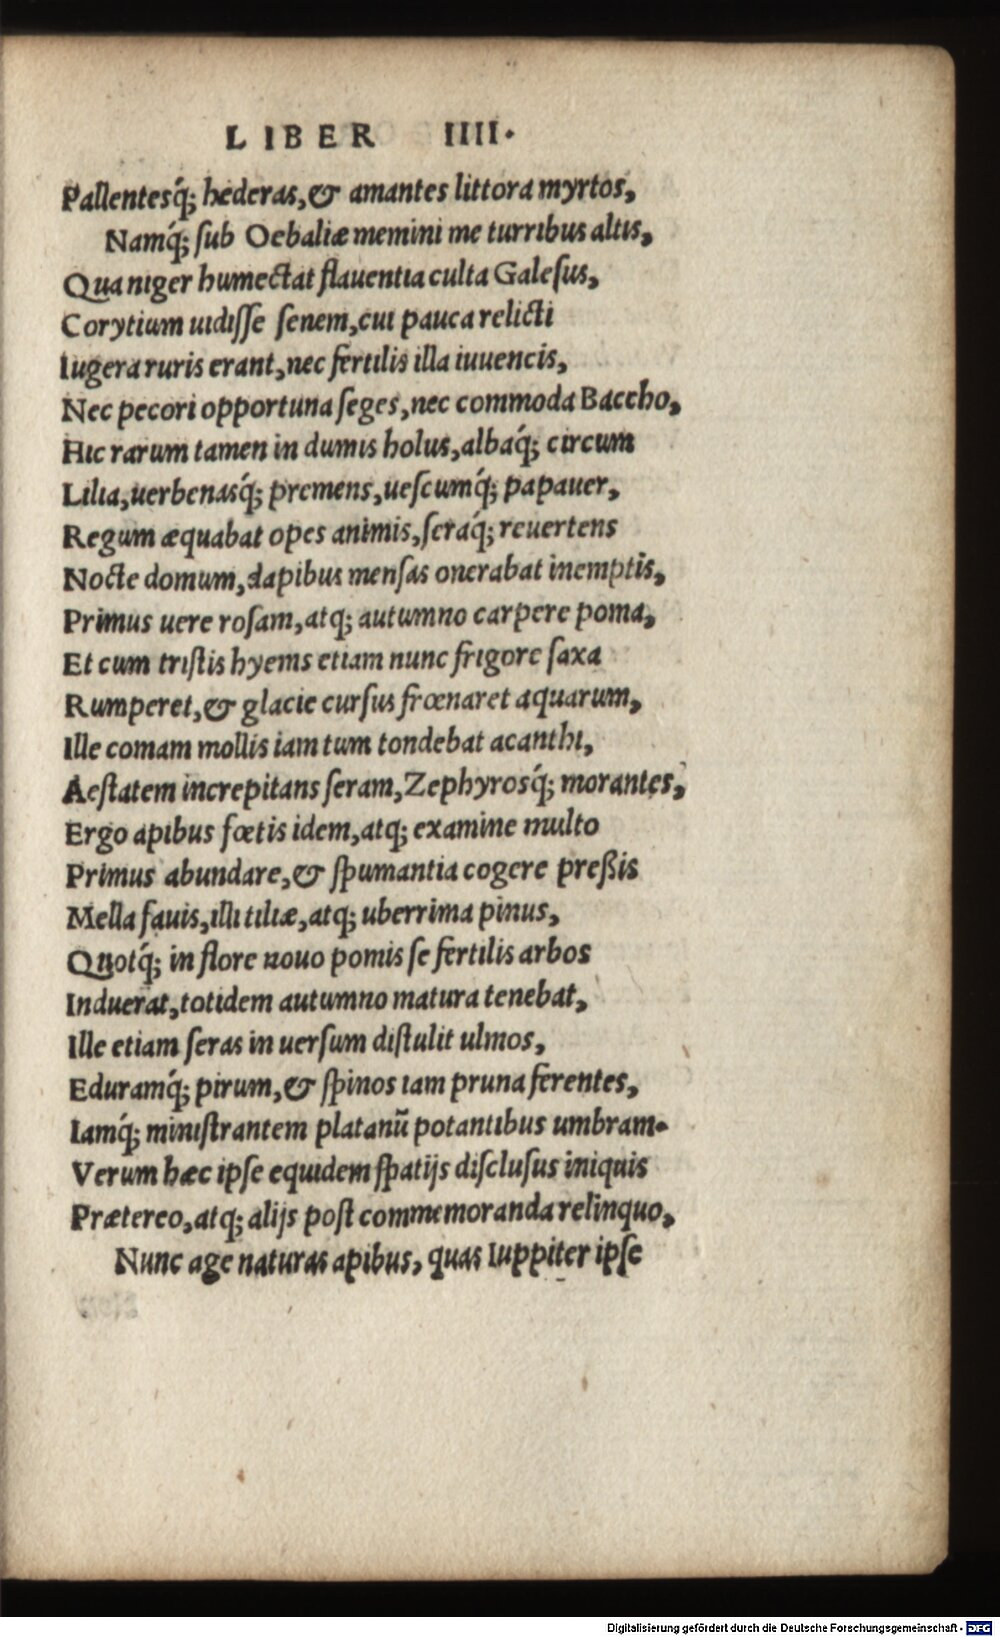 LIBER IIII.
Pallentesq́; hederas,& amantes littora myrtos,
Namq́; sub Oebaliæ memini me turribus altis,
Qua niger humectat flauentia culta Galesus,
Corytium uidisse senem,cui pauca relicti
Iugera ruris erant,nec fertilis illa iuuencis,
Nec pecori opportuna seges,nec commoda Baccho,
Hic rarum tamen in dumis holus,albaq́; circum
Lilia,uerbenasq́; premens,uescumq́; papauer,
Regum æquabat opes animis,seraq́; reuertens
Nocte domum,dapibus mensas onerabat inemptis,
Primus uere rosam,atq; autumno carpere poma,
Et cum tristis hyems etiam nunc frigore saxa
Rumperet,& glacie cursus frœnaret aquarum,
Ille comam mollis iam tum tondebat acanthi,
Aestatem increpitans seram,Zephyrosq́; morantes,
Ergo apibus fœtis idem,atq; examine multo
Primus abundare,& spumantia cogere preßis
Mella fauis,illi tiliæ,atq; uberrima pinus,
Quotq́; in flore nouo pomis se fertilis arbos
Induerat,totidem autumno matura tenebat,
Ille etiam seras in uersum distulit ulmos,
Eduramq́; pirum,& spinos iam pruna ferentes,
Iamq́; ministrantem platanū potantibus umbram.
Verum hæc ipse equidem spatijs disclusus iniquis
Prætereo,atq; alijs post commemoranda relinquo,
Nunc age naturas apibus, quas Iuppiter ipse
Digitalisierung gefördert durch die Deutsche Forschungsgemeinschaft - DFG